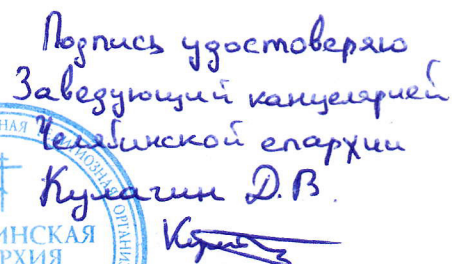 Подпись удостоверяю
Заведующий канцелярией
Челябинской епархии
Кулагин Д.В.
НАЯ РЕЛИГИОЗНАЯ ОРГАНИ
ИНСКАЯ
РХИЯ